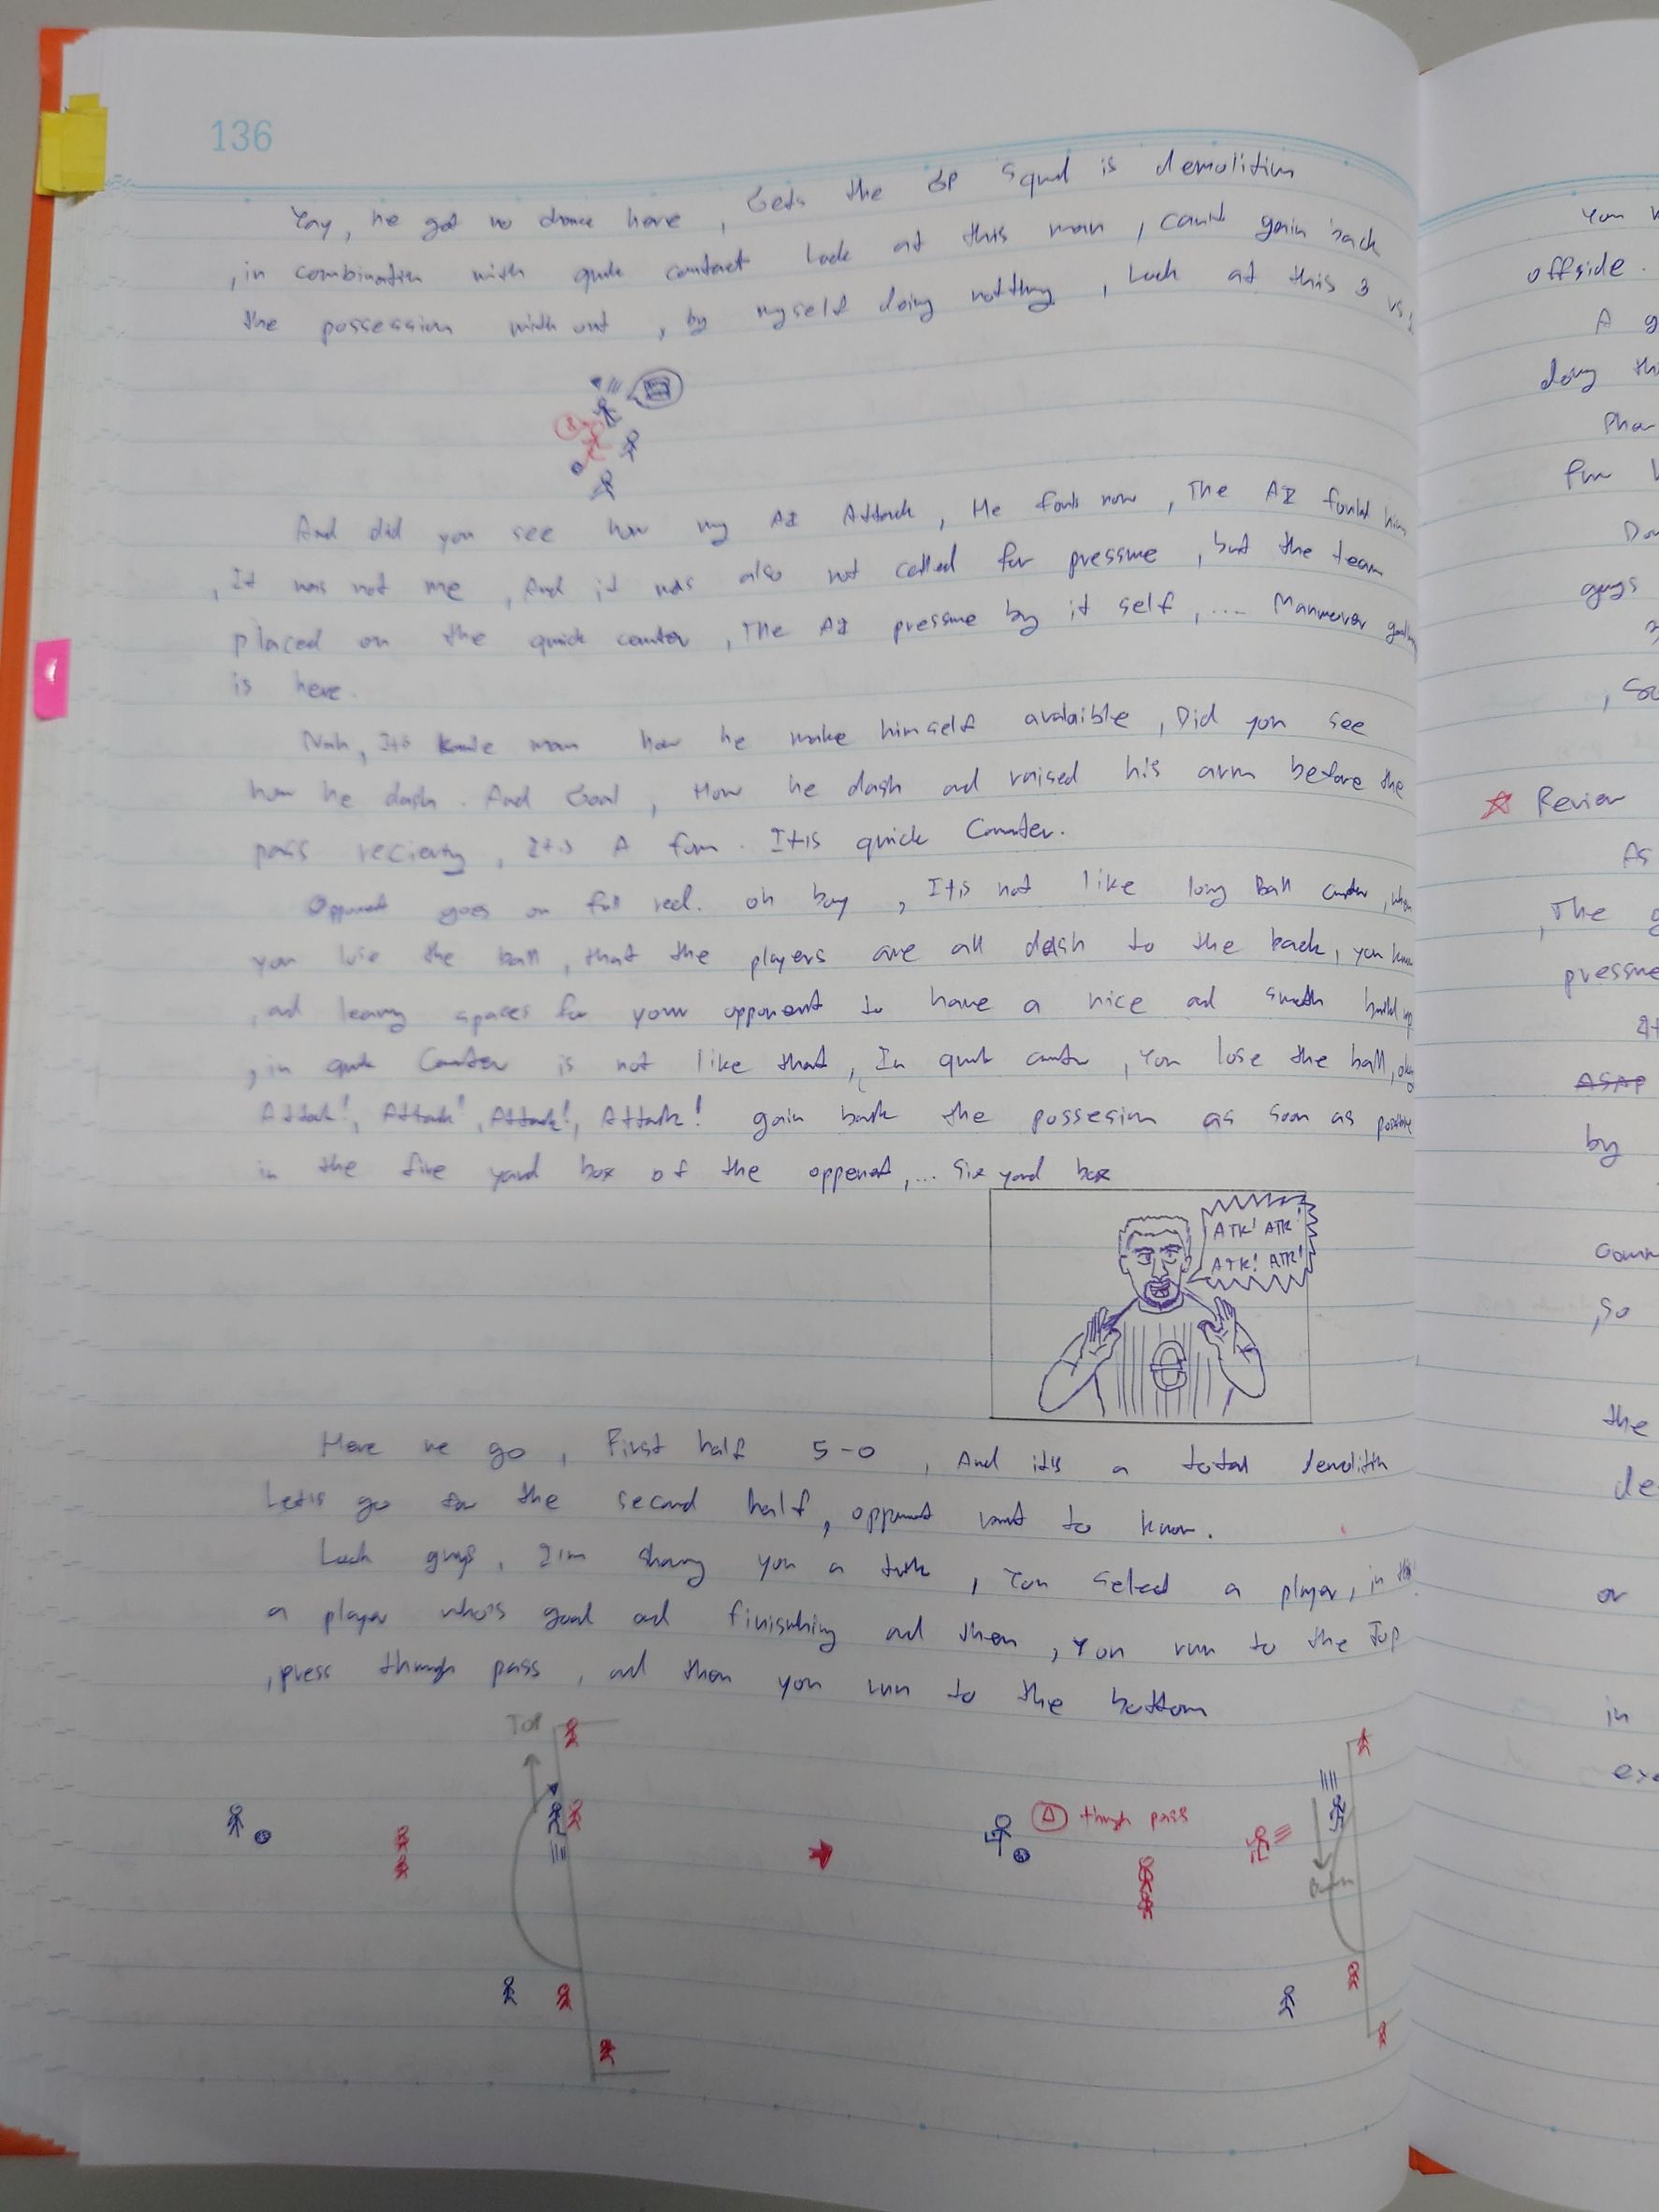 136
Yay, he got no chance here, Gets the GP Squad is demolition
, in combination with quick contact Look at this man, can't gain back
the possession without, by myself doing notthing, Look at this 3 vs.
And did you see how my AI Attack, He fouls now, The AI fould him
, It was not me, And it was also not called for pressure, but the team
placed on the quick counter, The AI pressure by it self, .... Maneuver
is here.
Nah, It's man how he make himself avalaible, Did you see
how he dash. And Goal, How he dash ad raised his arm before the
pass recieving, It is A fom. It is quick Counter.
Opponent goes on full red. oh boy, It is not like long Ball counter, when
you lose the ball, that the players are all dash to the back, you know
, ad leaving spaces for your opponent to have a nice ad smoth build up
, in quick Counter is not like that, In quick counter, You lose the ball, okay
Attack!, Attack!, Attack!, Attack! gain back the possesion as soon as possible
in the five yard box of the oppenent, ... Six yard box
ATK! ATK!
ATK! ATK!
Here we go, First half 5-0, And it's a total demolition
Let's go for the second half, opponent want to know.
Look guys, I'm sharing you a trick, You select a player, in this
a player who's good ad finishing ad then, You run to the Top
, press through pass, ad then you run to the bottom
TOP
△ though pass
Bottom
You
offside.
A
doing
for
guys
, So
☆ Review
As
, The
pressure
ASAP
by
, so
the
de
or
in